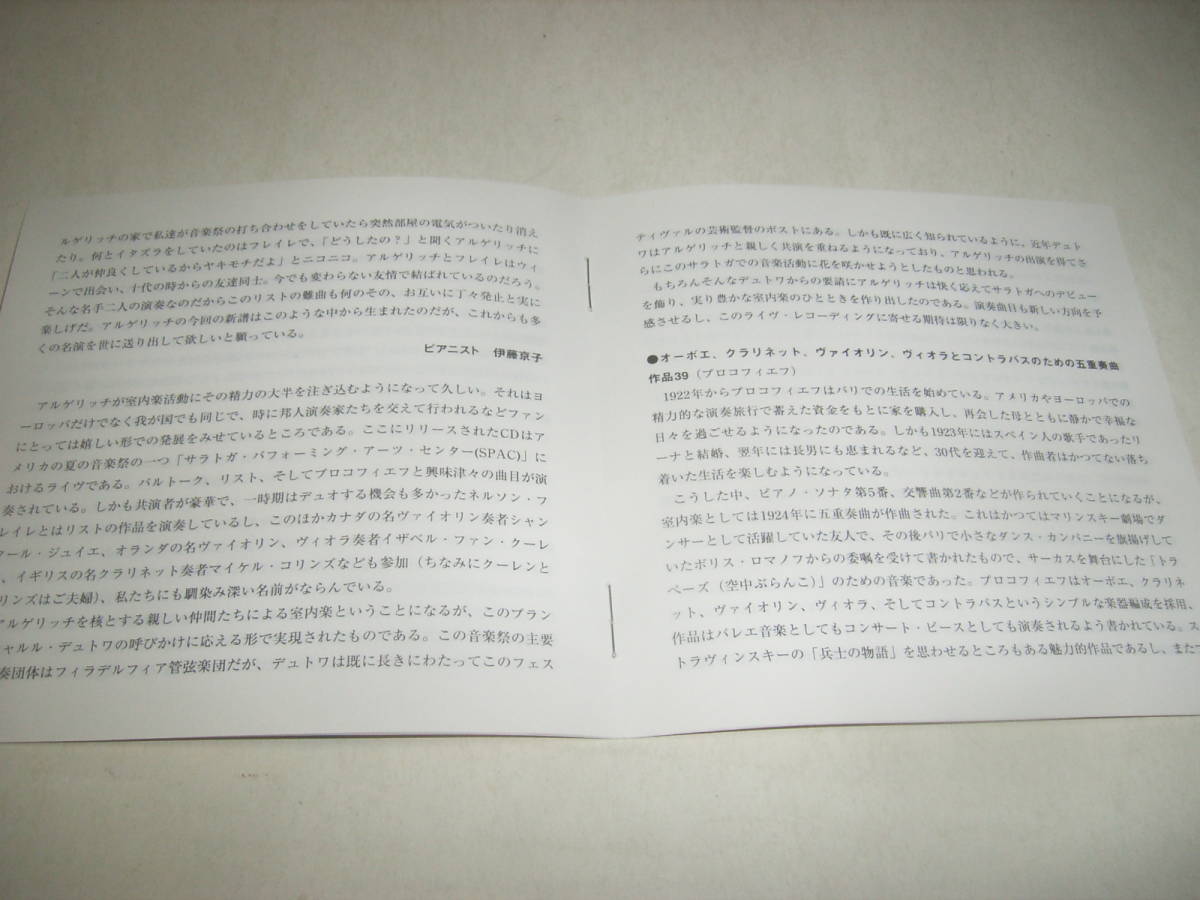 ルゲリッチの家で私達が音楽祭の打ち合わせをしていたら突然部屋の電気がついたり消え
たり。何とイタズラをしていたのはフレイレで、「どうしたの？」と聞くアルゲリッチに
「二人が仲良くしているからヤキモチだよ」とニコニコ。アルゲリッチとフレイレはウィ
ーンで出会い、十代の時からの友達同士。今でも変わらない友情で結ばれているのだろう。
そんな名手二人の演奏なのだからこのリストの難曲も何のその、お互いに丁々発止と実に
楽しげだ。アルゲリッチの今回の新譜はこのような中から生まれたのだが、これからも多
くの名演を世に送り出して欲しいと願っている。
ピアニスト　伊藤京子
アルゲリッチが室内楽活動にその精力の大半を注ぎ込むようになって久しい。それはヨ
ーロッパだけでなく我が国でも同じで、時に邦人演奏家たちを交えて行われるなどファン
にとっては嬉しい形での発展をみせているところである。ここにリリースされたCDはア
メリカの夏の音楽祭の一つ「サラトガ・パフォーミング・アーツ・センター(SPAC)」に
おけるライヴである。バルトーク、リスト、そしてプロコフィエフと興味津々の曲目が演
奏されている。しかも共演者が豪華で、一時期はデュオする機会も多かったネルソン・フ
レイレとはリストの作品を演奏しているし、このほかカナダの名ヴァイオリン奏者シャン
タール・ジュイエ、オランダの名ヴァイオリン、ヴィオラ奏者イザベル・ファン・クーレ
、イギリスの名クラリネット奏者マイケル・コリンズなども参加（ちなみにクーレンと
リンズはご夫婦)、私たちにも馴染み深い名前がならんでいる。
アルゲリッチを核とする親しい仲間たちによる室内楽ということになるが、このプラン
ャルル・デュトワの呼びかけに応える形で実現されたものである。この音楽祭の主要
奏団体はフィラデルフィア管弦楽団だが、デュトワは既に長きにわたってこのフェス
ティヴァルの芸術監督のポストにある。しかも既に広く知られているように、近年デュト
ワはアルゲリッチと親しく共演を重ねるようになっており、アルゲリッチの出演を得てさ
らにこのサラトガでの音楽活動に花を咲かせようとしたものと思われる。
もちろんそんなデュトワからの要請にアルゲリッチは快く応えてサラトガへのデビュー
を飾り、実り豊かな室内楽のひとときを作り出したのである。演奏曲目も新しい方向を予
感させるし、このライヴ・レコーディングに寄せる期待は限りなく大きい。
●オーボエ、クラリネット、ヴァイオリン、ヴィオラとコントラバスのための五重奏曲
作品39（プロコフィエフ）
1922年からプロコフィエフはパリでの生活を始めている。アメリカやヨーロッパでの
精力的な演奏旅行で蓄えた資金をもとに家を購入し、再会した母とともに静かで幸福な
日々を過ごせるようになったのである。しかも1923年にはスペイン人の歌手であったリ
ーナと結婚、翌年には長男にも恵まれるなど、30代を迎えて、作曲者はかつてない落ち
着いた生活を楽しむようになっている。
こうした中、ピアノ・ソナタ第5番、交響曲第2番などが作られていくことになるが、
室内楽としては1924年に五重奏曲が作曲された。これはかつてはマリンスキー劇場でダ
ンサーとして活躍していた友人で、その後パリで小さなダンス・カンパニーを旗揚げして
いたボリス・ロマノフからの委嘱を受けて書かれたもので、サーカスを舞台にした「トラ
ペーズ（空中ぶらんこ)」のための音楽であった。プロコフィエフはオーボエ、クラリネ
ット、ヴァイオリン、ヴィオラ、そしてコントラバスというシンプルな楽器編成を採用、
作品はバレエ音楽としてもコンサート・ピースとしても演奏されるよう書かれている。ス
トラヴィンスキーの「兵士の物語」を思わせるところもある魅力的作品であるし、また